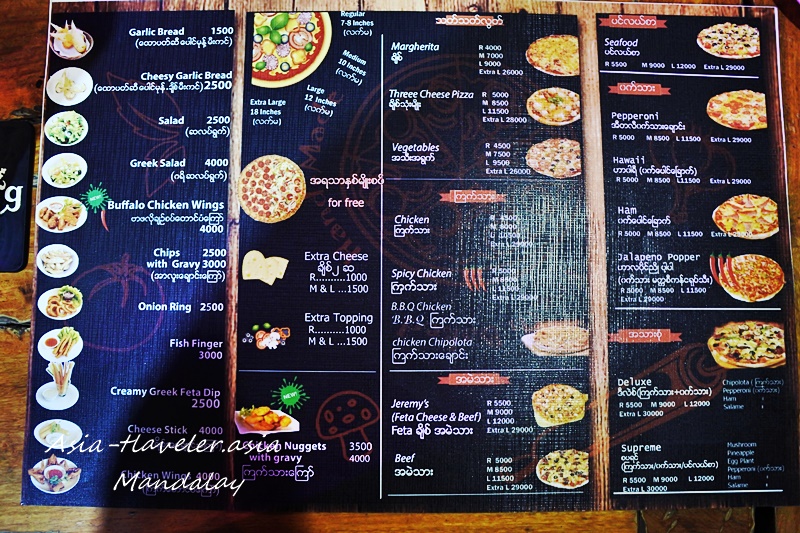 Garlic Bread 1500
(ထောပတ်ဆီ ပေါင်မုန့် မီးကင်)
Cheesy Garlic Bread
(ထောပတ်ဆီ ပေါင်မုန့် .ချိစ်မီးကင်) 2500
Salad 2500
(ဆလပ်ရွက်)
Greek Salad 4000
(ဂရိ ဆလပ်ရွက်)
NEW!
Buffalo Chicken Wings
4000
Chips 2500
with Gravy 3000
(အာလူးချောင်းကြော်)
Onion Ring 2500
Fish Finger
3000
Creamy Greek Feta Dip
2500
Cheese Stick 4000
Chicken Wings 4000
Regular
7-8 Inches
(လက်မ)
Medium
10 Inches
(လက်မ)
Large
12 Inches
(လက်မ)
Extra Large
18 Inches
(လက်မ)
အရသာနှစ်မျိုးစပ်
for free
Extra Cheese
ချိစ် ၂ ဆ
R..........1000
M & L ...1500
Extra Topping
R..........1000
M & L ...1500
NEW!
Chicken Nuggets 3500
with gravy 4000
ကြက်သားကြော်
သတ်သတ်လွတ်
Margherita
ချိစ်
R 4000
M 7000
L 9000
Extra L 26000
Threee Cheese Pizza
ချိစ်သုံးမျိုး
R 5000
M 8500
L 11500
Extra L 28000
Vegetables
အသီးအရွက်
R 4500
M 7500
L 9500
Extra L 26000
ကြက်သား
Chicken
ကြက်သား
Spicy Chicken
ကြက်သား
B.B.Q Chicken
B.B.Q ကြက်သား
chicken Chipolota
ကြက်သားချောင်း
အမဲသား
Jeremy's
(Feta Cheese & Beef)
Feta ချိစ် အမဲသား
R 5500
M 9000
L 12000
Extra L 29000
Beef
အမဲသား
R 5000
M 8500
L 11500
Extra L 29000
ပင်လယ်စာ
Seafood
ပင်လယ်စာ
R 5500 M 9000 L 12000 Extra L 29000
ဝက်သား
Pepperoni
အီတလီဝက်သားချောင်း
R 5000 M 8500 L 11500 Extra L 29000
Hawaii
ဟာဝါရီ (ဝက်ပေါင်ခြောက်)
R 5000 M 8500 L 11500 Extra L 29000
Ham
ဝက်ပေါင်ခြောက်
R 5000 M 8500 L 11500 Extra L 29000
Jalapeno Popper
R 5000 M 8500 L 11500 Extra L 29000
အသားစုံ
Deluxe
ဒီလစ်(ကြက်သား+ဝက်သား)
R 5500 M 9000 L 12000
Extra L 30000
Chipolota (ကြက်သား)
Pepperoni (ဝက်သား)
Ham
Salame
Supreme
စပရင်
(ကြက်သား/ဝက်သား/ပင်လယ်စာ)
R 5500 M 9000 L 12000
Extra L 30000
Mushroom
Pineapple
Egg Plant
Pepperoni (ဝက်သား)
Ham
Salame
Mandalay